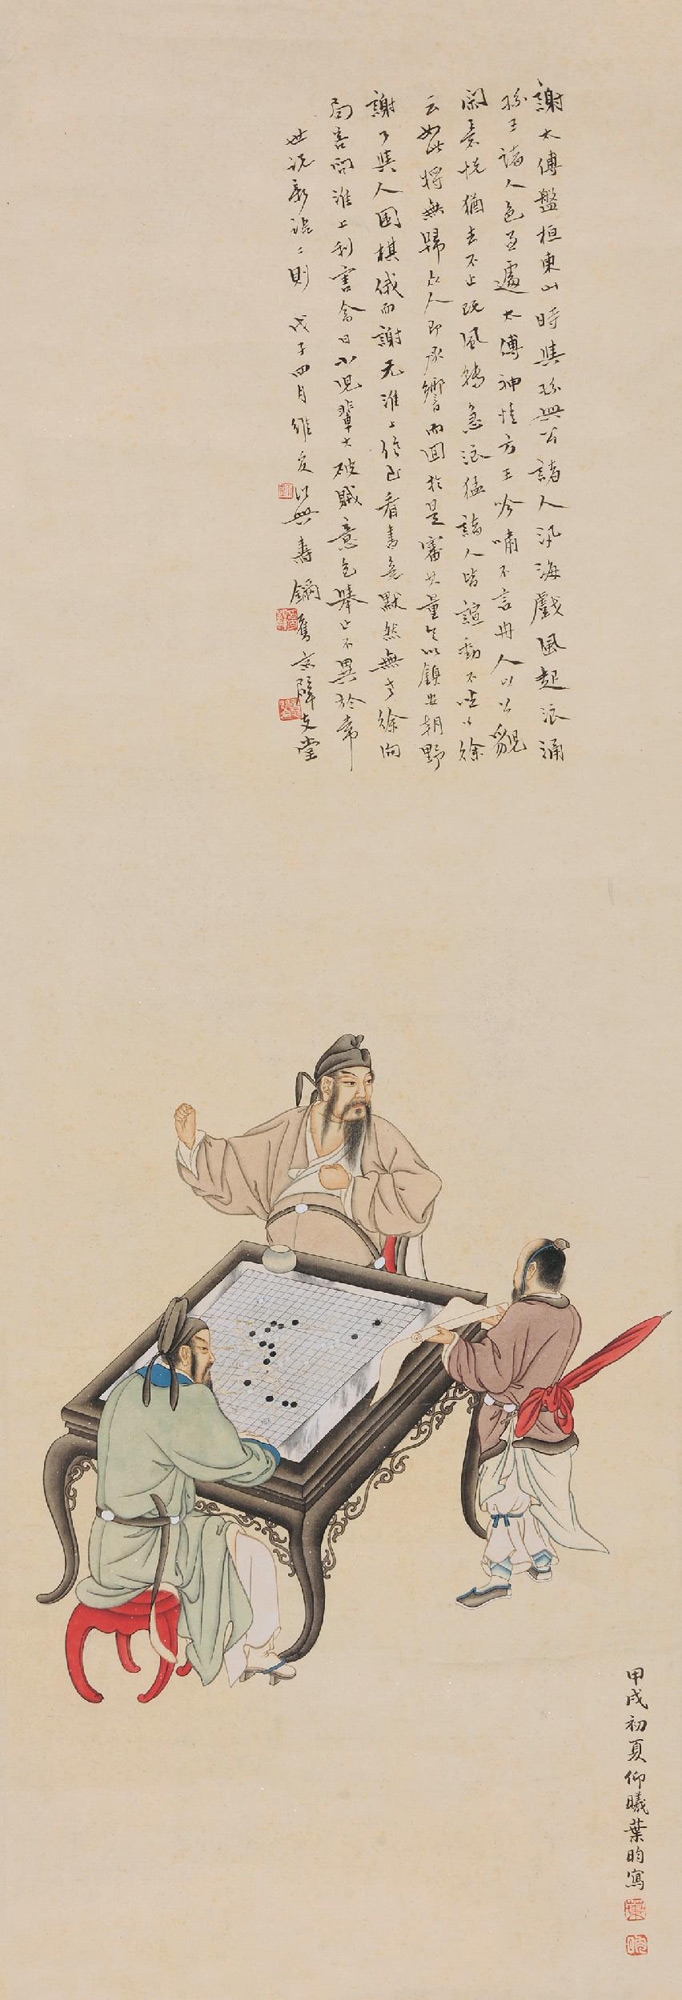 謝太傅盤桓東山時與孫興公諸人汎海戲風起浪涌
孫王諸人色並遽太傅神情方王吟嘯不言舟人以公貌
閑意悅猶去不止既風轉急浪猛諸人皆諠動不坐公徐
云如此將無歸眾人即承響而回於是審其量足以鎮安朝野
謝公與人圍棋俄而謝玄淮上信至看書竟默然無言徐向
局客問淮上利害答曰小兒輩大破賊意色舉止不異於常
世說新語二則 戊子四月
甲戌初夏仰曦葉昀寫